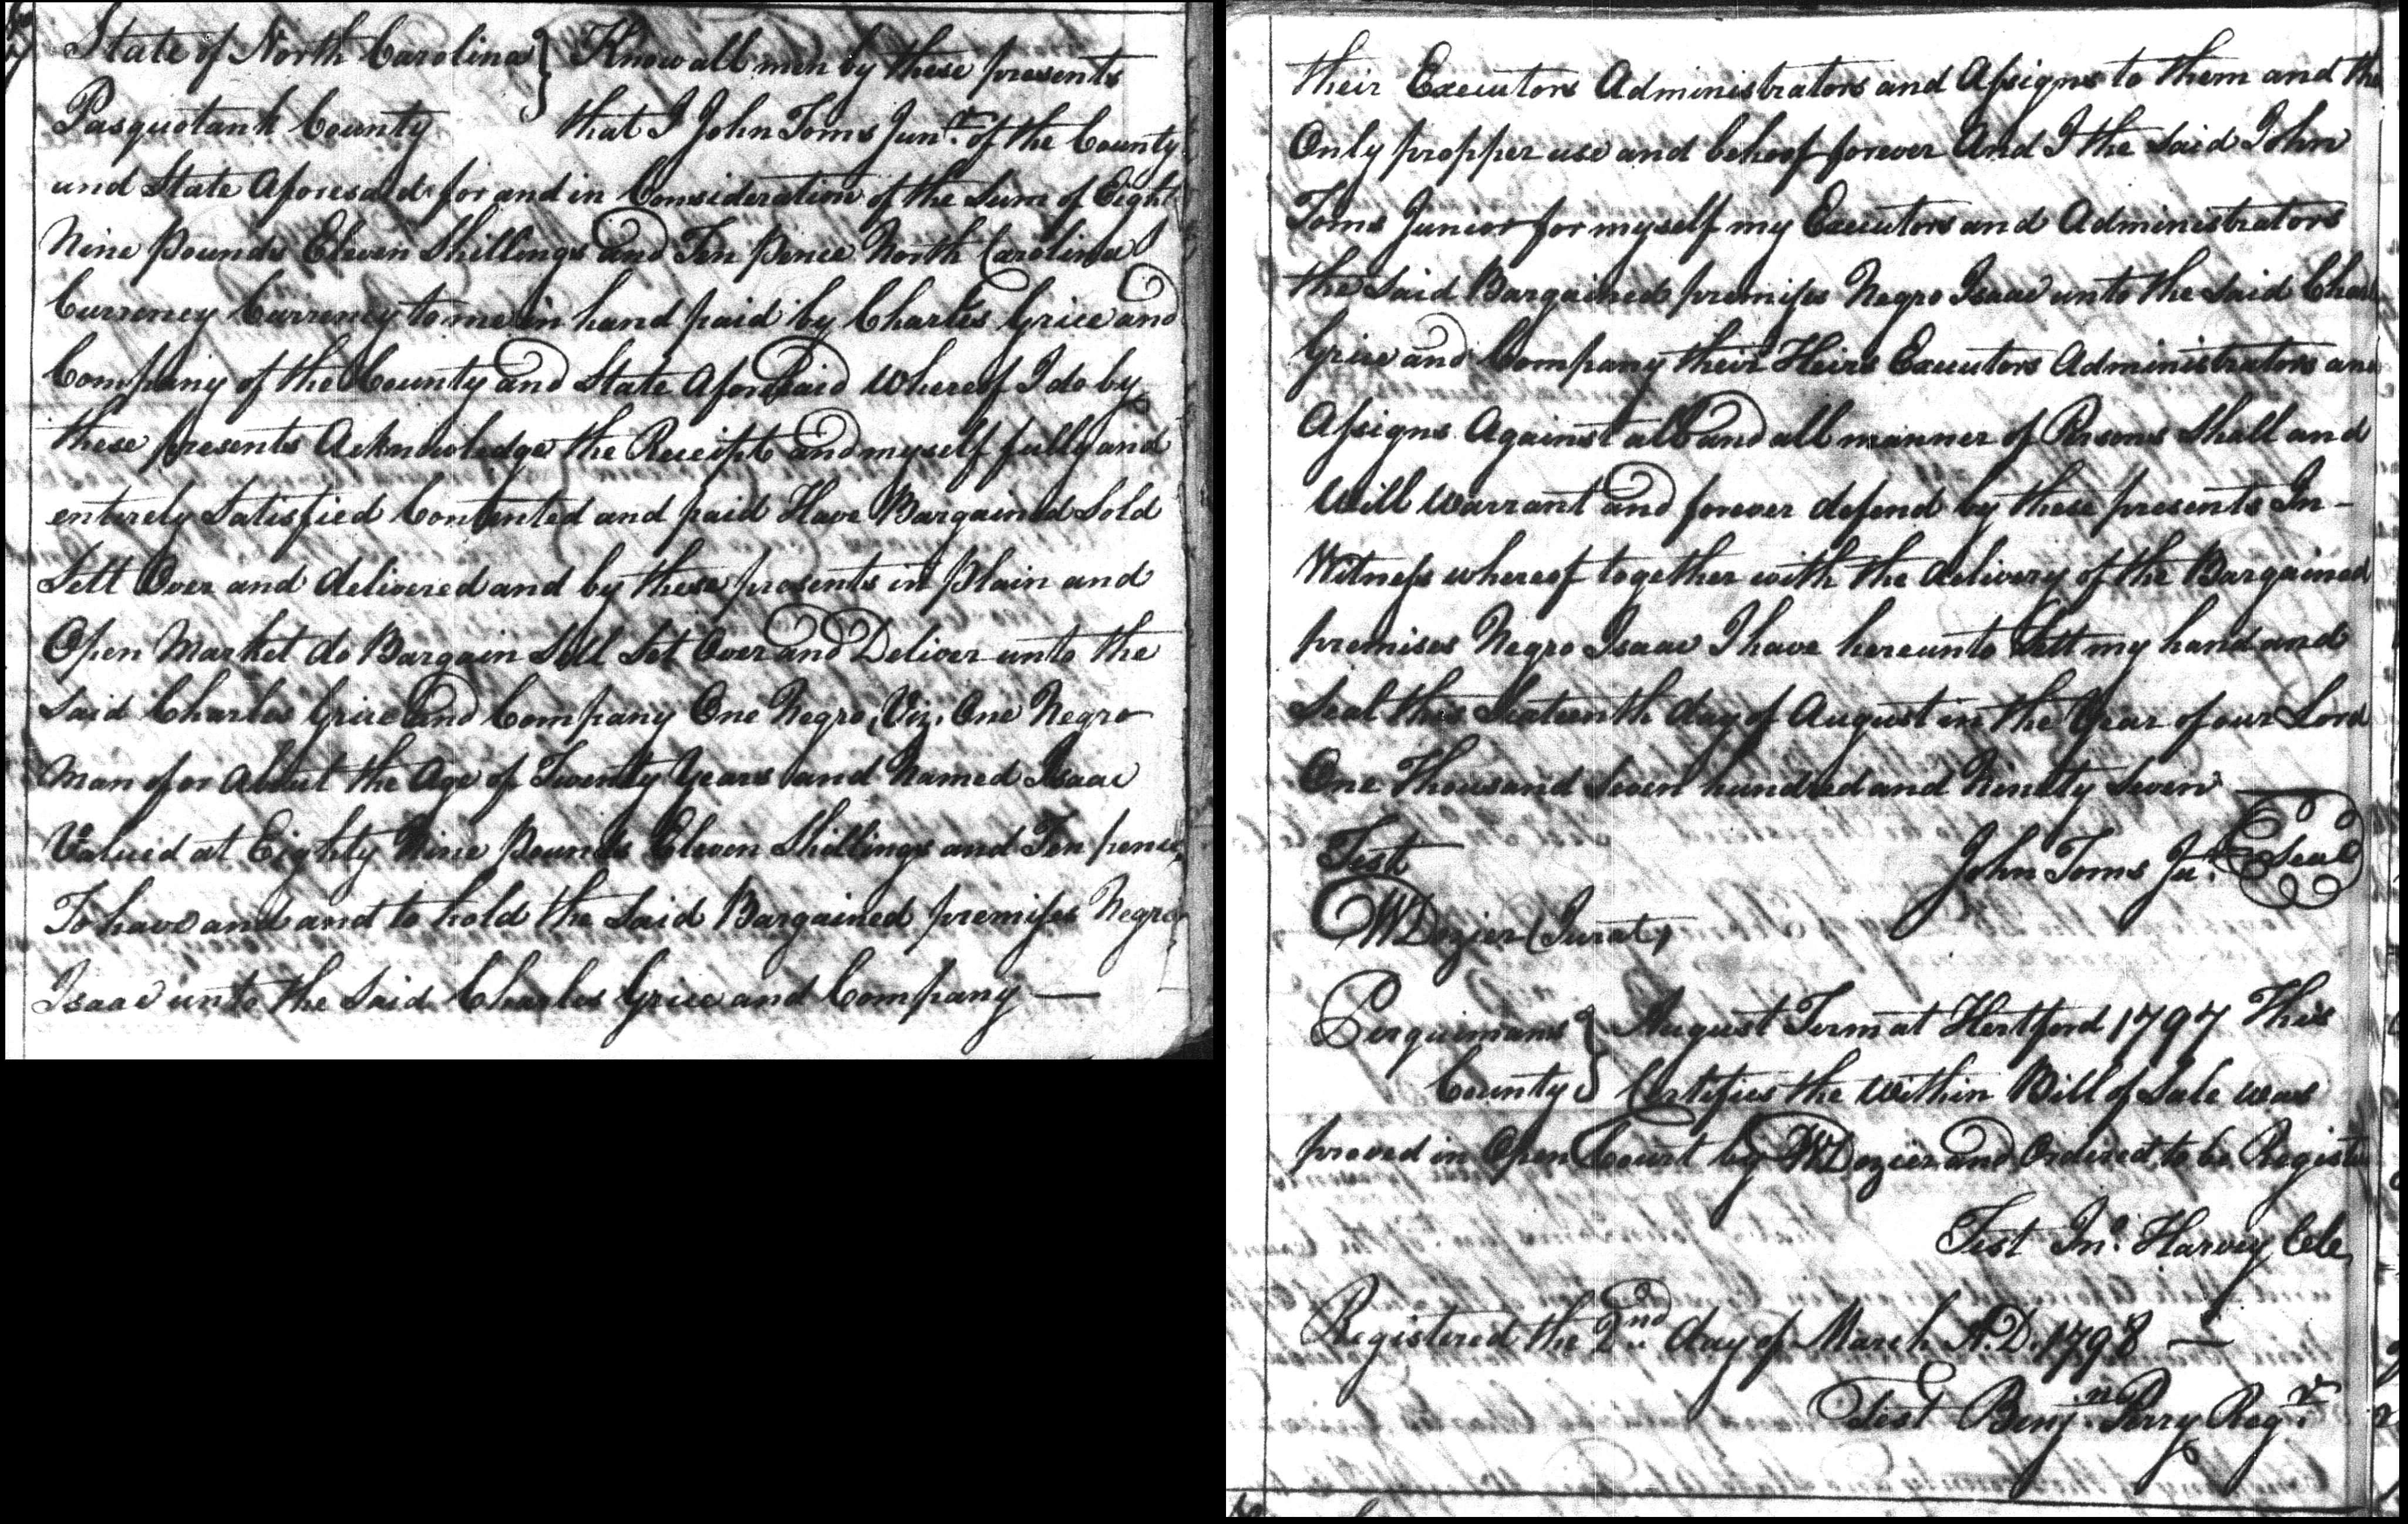 State of North Carolina } Know all men by these presents
Pasquotank County that I John Toms Junr. of the County
and State Aforesaid for and in Consideration of the Sum of Eight
Nine pounds Eleven Shillings and Ten pence North Carolina
Currency Currency to me in hand paid by Charles Grice and
Company of the County and State Aforesaid Whereof I do by
these presents Acknowledge the Receipt and myself fully and
entirely Satisfied Contented and paid Have Bargained Sold
Sett Over and delivered and by these presents in plain and
Open Market do Bargain Sell Set Over and Deliver unto the
Said Charles Grice and Company One Negro, Viz. One Negro
Man of or About the Age of Twenty Years and Named Isaac
Valued at Eighty Nine Pounds Eleven Shillings and Ten pence,
To have and and to hold the Said Bargained premises Negro
Isaac unto the Said Charles Grice and Company —
their Executors Administrators and Assigns to them and the
Only propper use and behoof forever And I the Said John
Toms Junior for myself my Executors and Administrators
the Said Bargained premises Negro Isaac unto the Said Char
Grice and Company their Heirs Executors Administrators and
Assigns Against all and all manner of Persons Shall and
Will Warrant and forever defend by these presents In-
Witness whereof together with the delivery of the Bargained
premises Negro Isaac I have hereunto Sett my hand and
Seal this Sixteenth day of August in the Year of our Lord
One Thousand Seven hundred and Ninety Seven
Test John Toms Jur. Seal
W Dozier (Jurat)
Perquimans } August Term at Hertford 1797 This
County } Certifies the Within Bill of Sale was
proved in Open Court by W Dozier and Ordered to be Registe
Test Jno. Harvey Cle
Registered the 2nd day of March A.D. 1798 —
Test Benjn. Perry Regr.